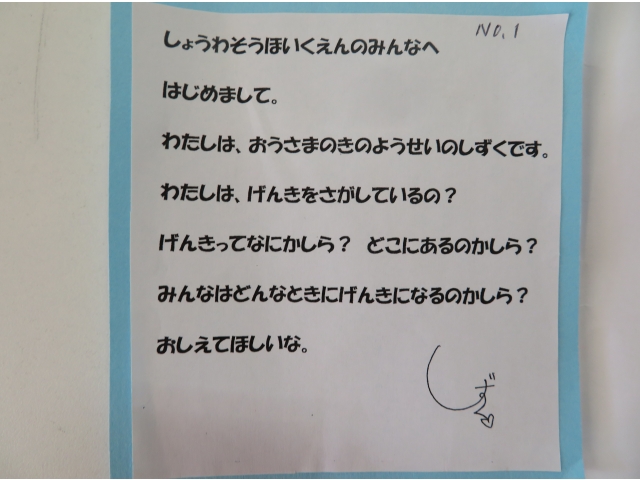 NO.1
しょうわそうほいくえんのみんなへ
はじめまして。
わたしは、おうさまのきのようせいのしずくです。
わたしは、げんきをさがしているの？
げんきってなにかしら？　どこにあるのかしら？
みんなはどんなときにげんきになるのかしら？
おしえてほしいな。
しずく